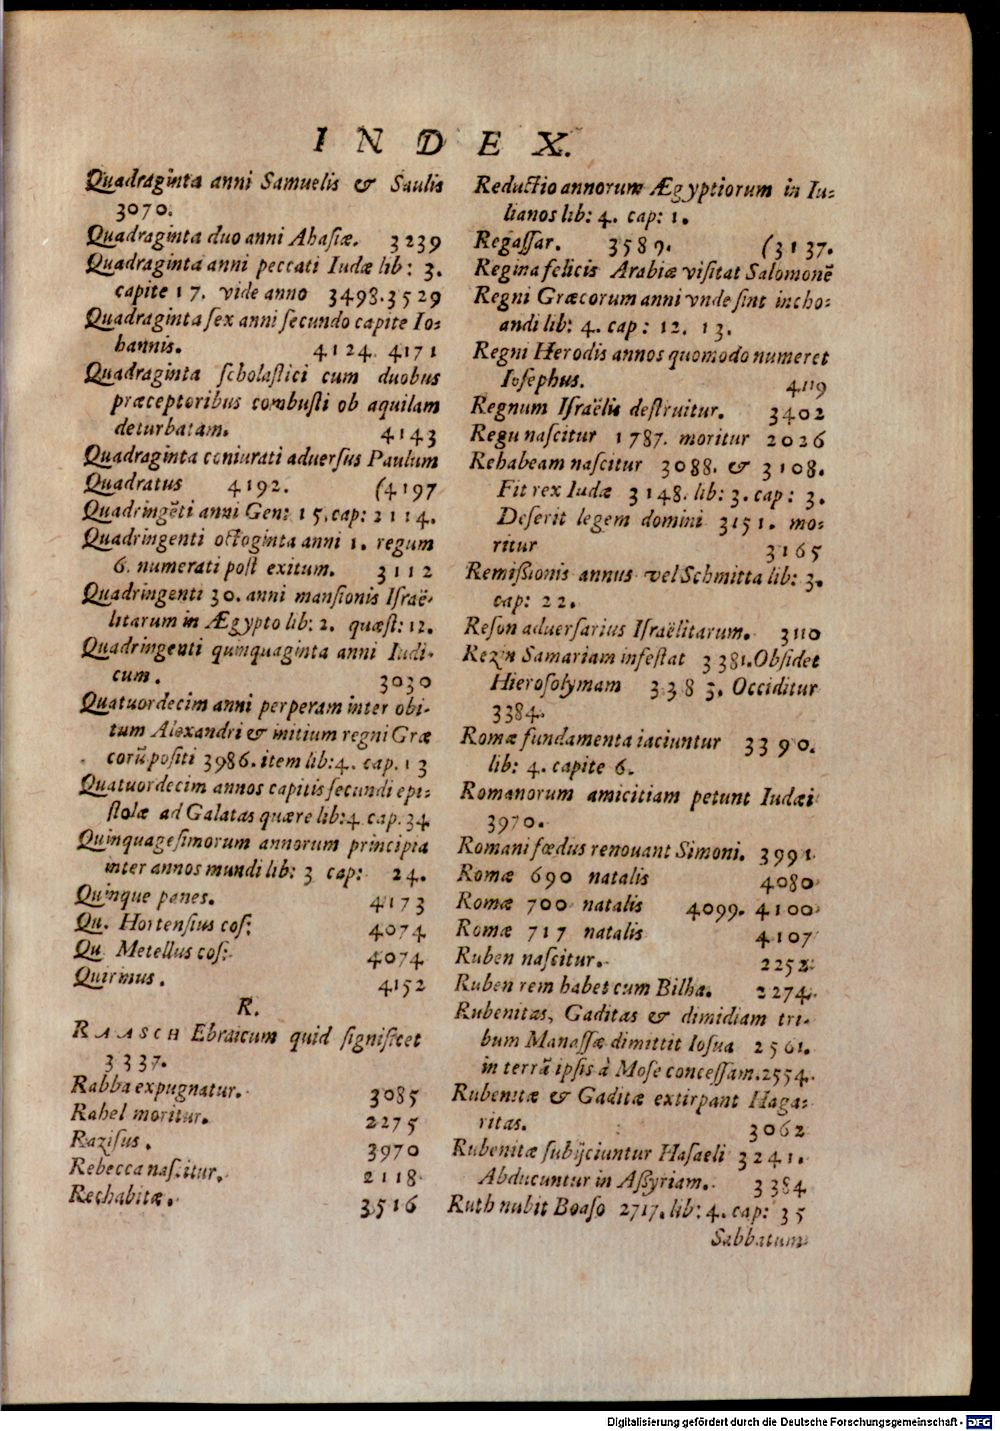 INDEX.
Quadraginta anni Samuelis & Saulis
3070.
Quadraginta duo anni Ahasiæ. 3239
Quadraginta anni peccati Iudæ lib: 3.
capite 17. vide anno 3498.3529
Quadraginta sex anni secundo capite Io:
hannis. 4124. 4171
Quadraginta scholastici cum duobus
præceptoribus combusti ob aquilam
deturbatam. 4143
Quadraginta coniurati adversus Paulum
Quadratus 4192. (4197
Quadringēti anni Gen: 15.cap: 2114.
Quadringenti octoginta anni 1. regum
6. numerati post exitum. 3112
Quadringenti 30. anni mansionis Israë-
litarum in Ægypto lib: 2. quæst: 12.
Quadringenti quinquaginta anni Iudi-
cum. 3030
Quatuordecim anni perperam inter obi-
tum Alexandri & initium regni Græ
corū positi 3986. item lib:4. cap. 13
Quatuordecim annos capitis secundi epi:
stolæ ad Galatas quære lib:4 cap. 34
Quinquagesimorum annorum principia
inter annos mundi lib: 3 cap: 24.
Quinque panes. 4173
Qu. Hortensius cos: 4074
Qu. Metellus cos: 4074
Quirinus. 4152
R.
RAASCH Ebraicum quid significet
3337.
Rabba expugnatur. 3085
Rahel moritur. 2275
Razisus. 3970
Rebecca nascitur. 2118
Rechabitæ. 3516
Reductio annorum Ægyptiorum in Iu:
lianos lib: 4. cap: 1.
Regassar. 3589. (3137.
Regina felicis Arabiæ visitat Salomonē
Regni Græcorum anni vnde sint incho:
andi lib: 4. cap: 12. 13.
Regni Herodis annos quomodo numeret
Iosephus. 4119
Regnum Israëlis destruitur. 3402
Regu nascitur 1787. moritur 2026
Rehabeam nascitur 3088. & 3108.
Fit rex Iudæ 3148. lib: 3. cap: 3.
Deserit legem domini 3151. mo:
ritur 3165
Remissionis annus vel Schmitta lib: 3.
cap: 22.
Reson adversarius Israëlitarum. 3110
Rezin Samariam infestat 3381. Obsidet
Hierosolymam 3383. Occiditur
3384.
Romæ fundamenta iaciuntur 3390.
lib: 4. capite 6.
Romanorum amicitiam petunt Iudæi
3970.
Romani fœdus renouant Simoni. 3991
Romæ 690 natalis 4080
Romæ 700 natalis 4099. 4100
Romæ 717 natalis 4107
Ruben nascitur. 2252
Ruben rem habet cum Bilha. 2274.
Rubenitas, Gaditas & dimidiam tri-
bum Manassæ dimittit Iosua 2561.
in terrā ipsis à Mose concessam. 2554.
Rubenitæ & Gaditæ extirpant Haga:
ritas. 3062
Rubenitæ subijciuntur Hasaeli 3241.
Abducuntur in Assyriam. 3384
Ruth nubit Boaso 2717. lib: 4. cap: 35
Sabbatum
Digitalisierung gefördert durch die Deutsche Forschungsgemeinschaft - DFG